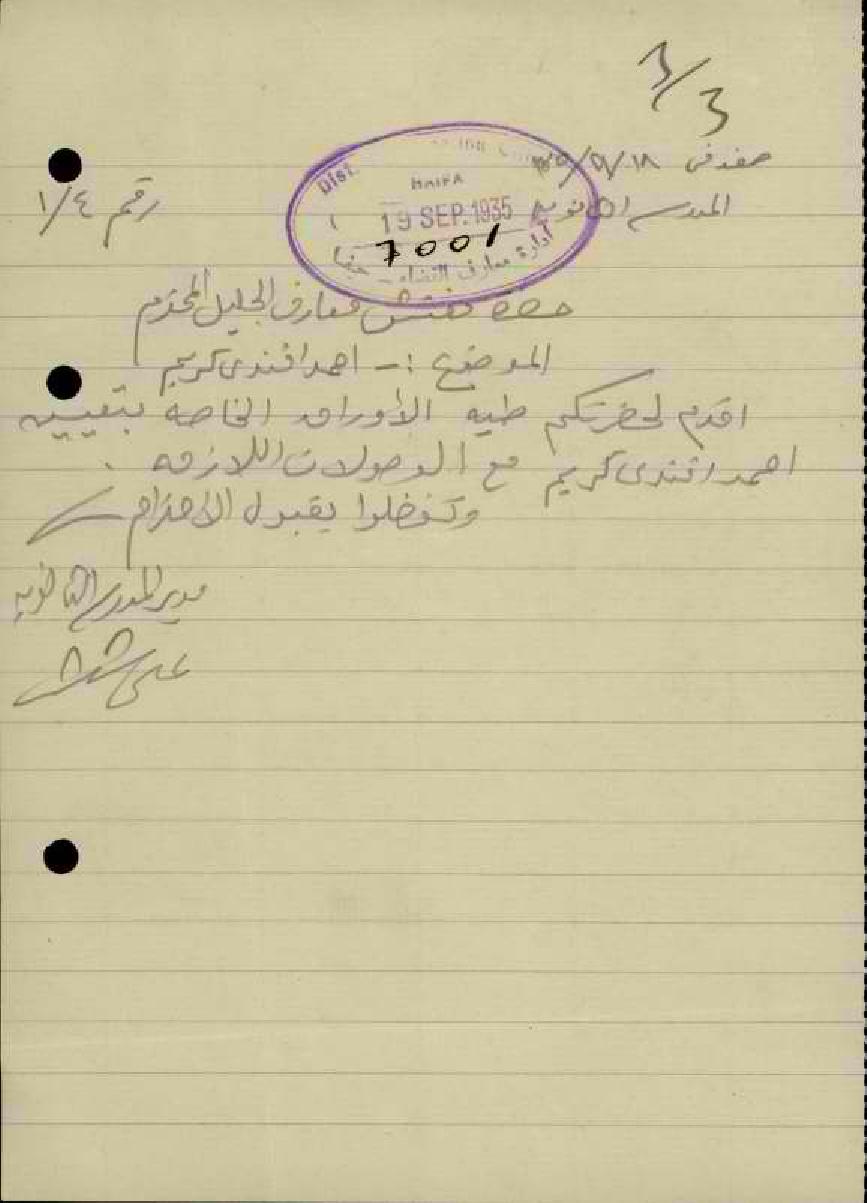 3/3
صفد في ١٨/٩/٩٣٥
المدرسه الثانويه
رقم ١/٤
Dist.
HAIFA
19 SEP. 1935
7001
إدارة معارف القضاء - حيفا
حضرة مفتش معارف الجليل المحترم
الموضوع :- احمد افندي كريم
اقدم لحضرتكم طيه الأوراق الخاصه بتعيين
احمد افندي كريم مع الوصولات اللازمه .
وتفضلوا بقبول الاحترام
مدير المدرسه الثانويه